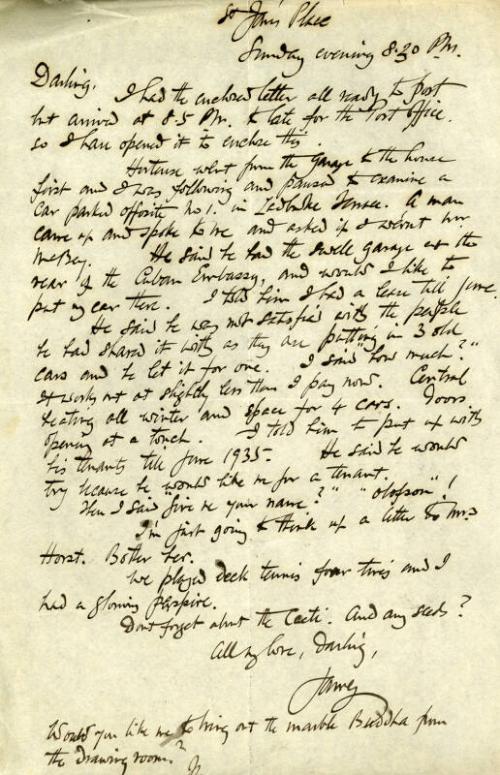 St James Place
Sunday evening 8.30 P.M.
Darling,
I had the enclosed letter all ready to post
but arrived at 8.5 P.M. to late for the Post Office.
so I have opened it to enclose this.
Hortense went from the Garage to the house
first and I was following and paused to examine a
car parked opposite No 1. in Ladbroke Terrace. A man
came up and spoke to me and asked if I wasnt Mr
McBey. He said he had the swell garage at the
rear of the Cuban Embassy, and would I like to
put my car there. I told him I had a lease till June.
He said he was not satisfied with the people
he had shared it with as they are putting in 3 old
cars and he let it for one. I said "how much?"
It works out at slightly less than I pay now. Central
heating all winter and space for 4 cars. Doors
opening at a touch. I told him to put up with
his tenants till June 1935. He said he would
try because he would like me for a tenant.
Then I said "give me your name?" "Olofson"!
I'm just going to think up a letter to Mrs
Horst. Bother her.
We played deck tennis four times and I
had a glowing perspire.
Dont forget about the Cacti. And any seeds?
All my love, Darling,
James
Would you like me to bring out the marble Buddha from
the drawing room?